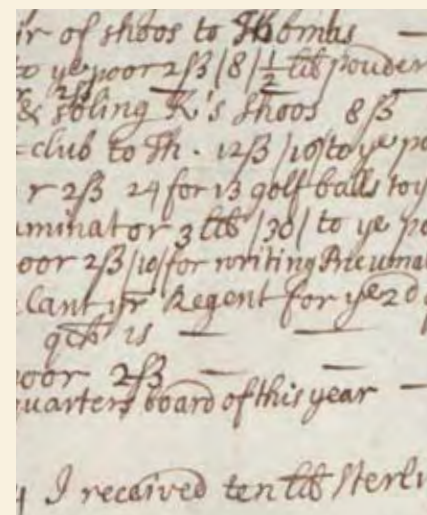 ir of shoos to Thomas —
o ye poor 2ß /8/ ½ lib pouder
r 2ß
& soling K's shoos 8ß
club to Th. 12ß /10/ to ye po
r 2ß 24 for 13 golf balls to y
uminator 3 lib /30/ to ye po
oor 2ß /10/ for writing Pneumat
lant yr Regent for ye 2d
qch is — —
oor 2ß — —
quarters board of this year —
I received ten lib Sterli